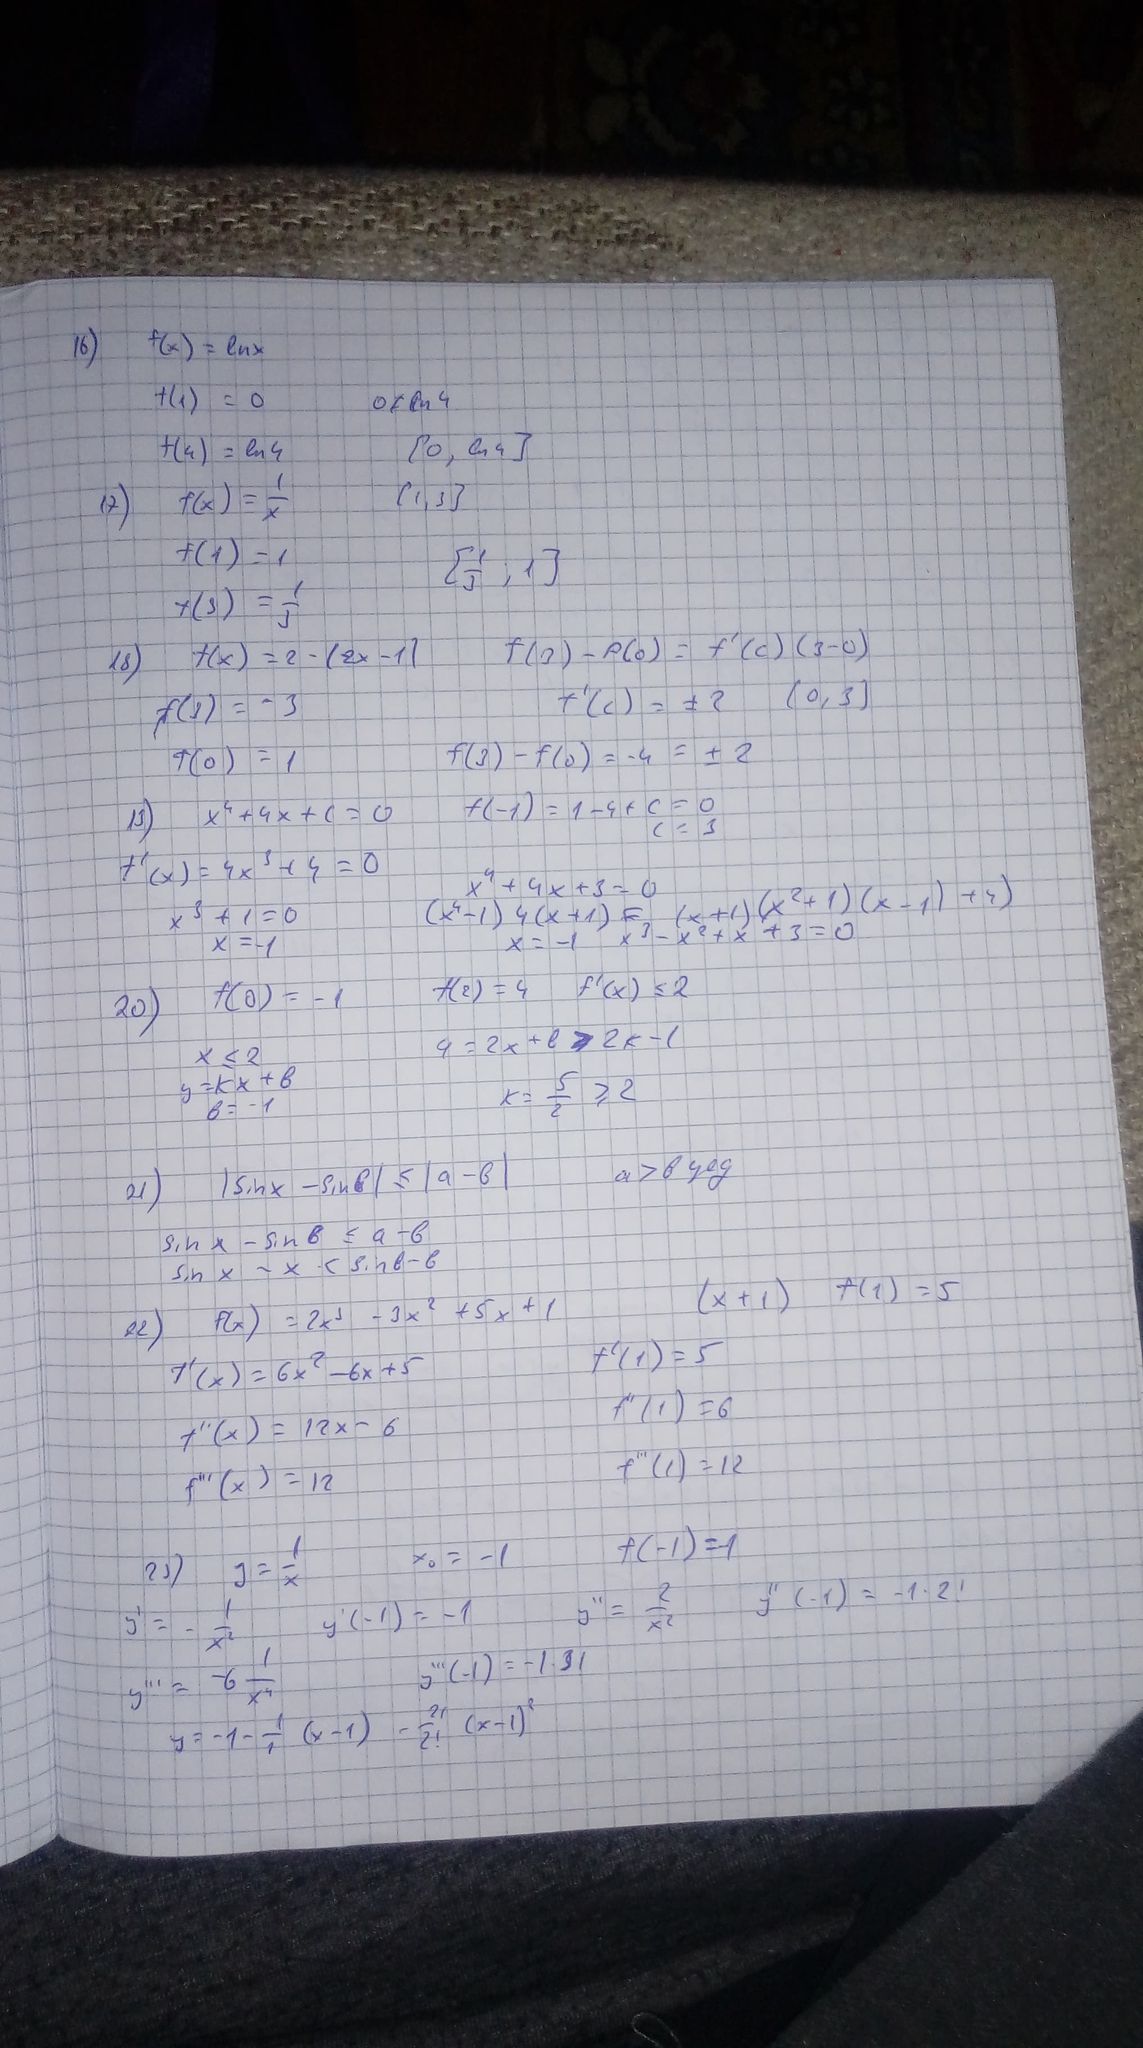 16) f(x) = ln x
f(1) = 0 0 < ln 4
f(4) = ln 4 [0, ln 4]
17) f(x) = 1/x [1, 3]
f(1) = 1 [1/3, 1]
f(3) = 1/3
18) f(x) = 2 - |2x - 1| f(3) - f(0) = f'(c) (3 - 0)
f(3) = -3 f'(c) = ±2 [0, 3]
f(0) = 1 f(3) - f(0) = -4 = ±2
19) x⁴ + 4x + c = 0 f(-1) = 1 - 4 + c = 0
c = 3
f'(x) = 4x³ + 4 = 0
x⁴ + 4x + 3 = 0
x³ + 1 = 0 (x⁴ - 1) 4(x + 1) = (x + 1)(x² + 1)(x - 1) + 4)
x = -1 x = -1 x³ - x² + x + 3 = 0
20) f(0) = -1 f(2) = 4 f'(x) ≤ 2
x ≤ 2 4 = 2x + b > 2k - 1
y = kx + b
b = -1 k = 5/2 ≥ 2
21) |sin x - sin b| ≤ |a - b| a > b
sin x - sin b ≤ a - b
sin x - x < sin b - b
22) f(x) = 2x³ - 3x² + 5x + 1 (x + 1) f(1) = 5
f'(x) = 6x² - 6x + 5 f'(1) = 5
f''(x) = 12x - 6 f''(1) = 6
f'''(x) = 12 f'''(1) = 12
23) y = 1/x x₀ = -1 f(-1) = -1
y' = - 1/x² y'(-1) = -1 y'' = 2/x² y''(-1) = -1·2!
y''' = -6 1/x⁴ y'''(-1) = -1·3!
y = -1 - 1/1 (x - 1) - 2!/2! (x - 1)²